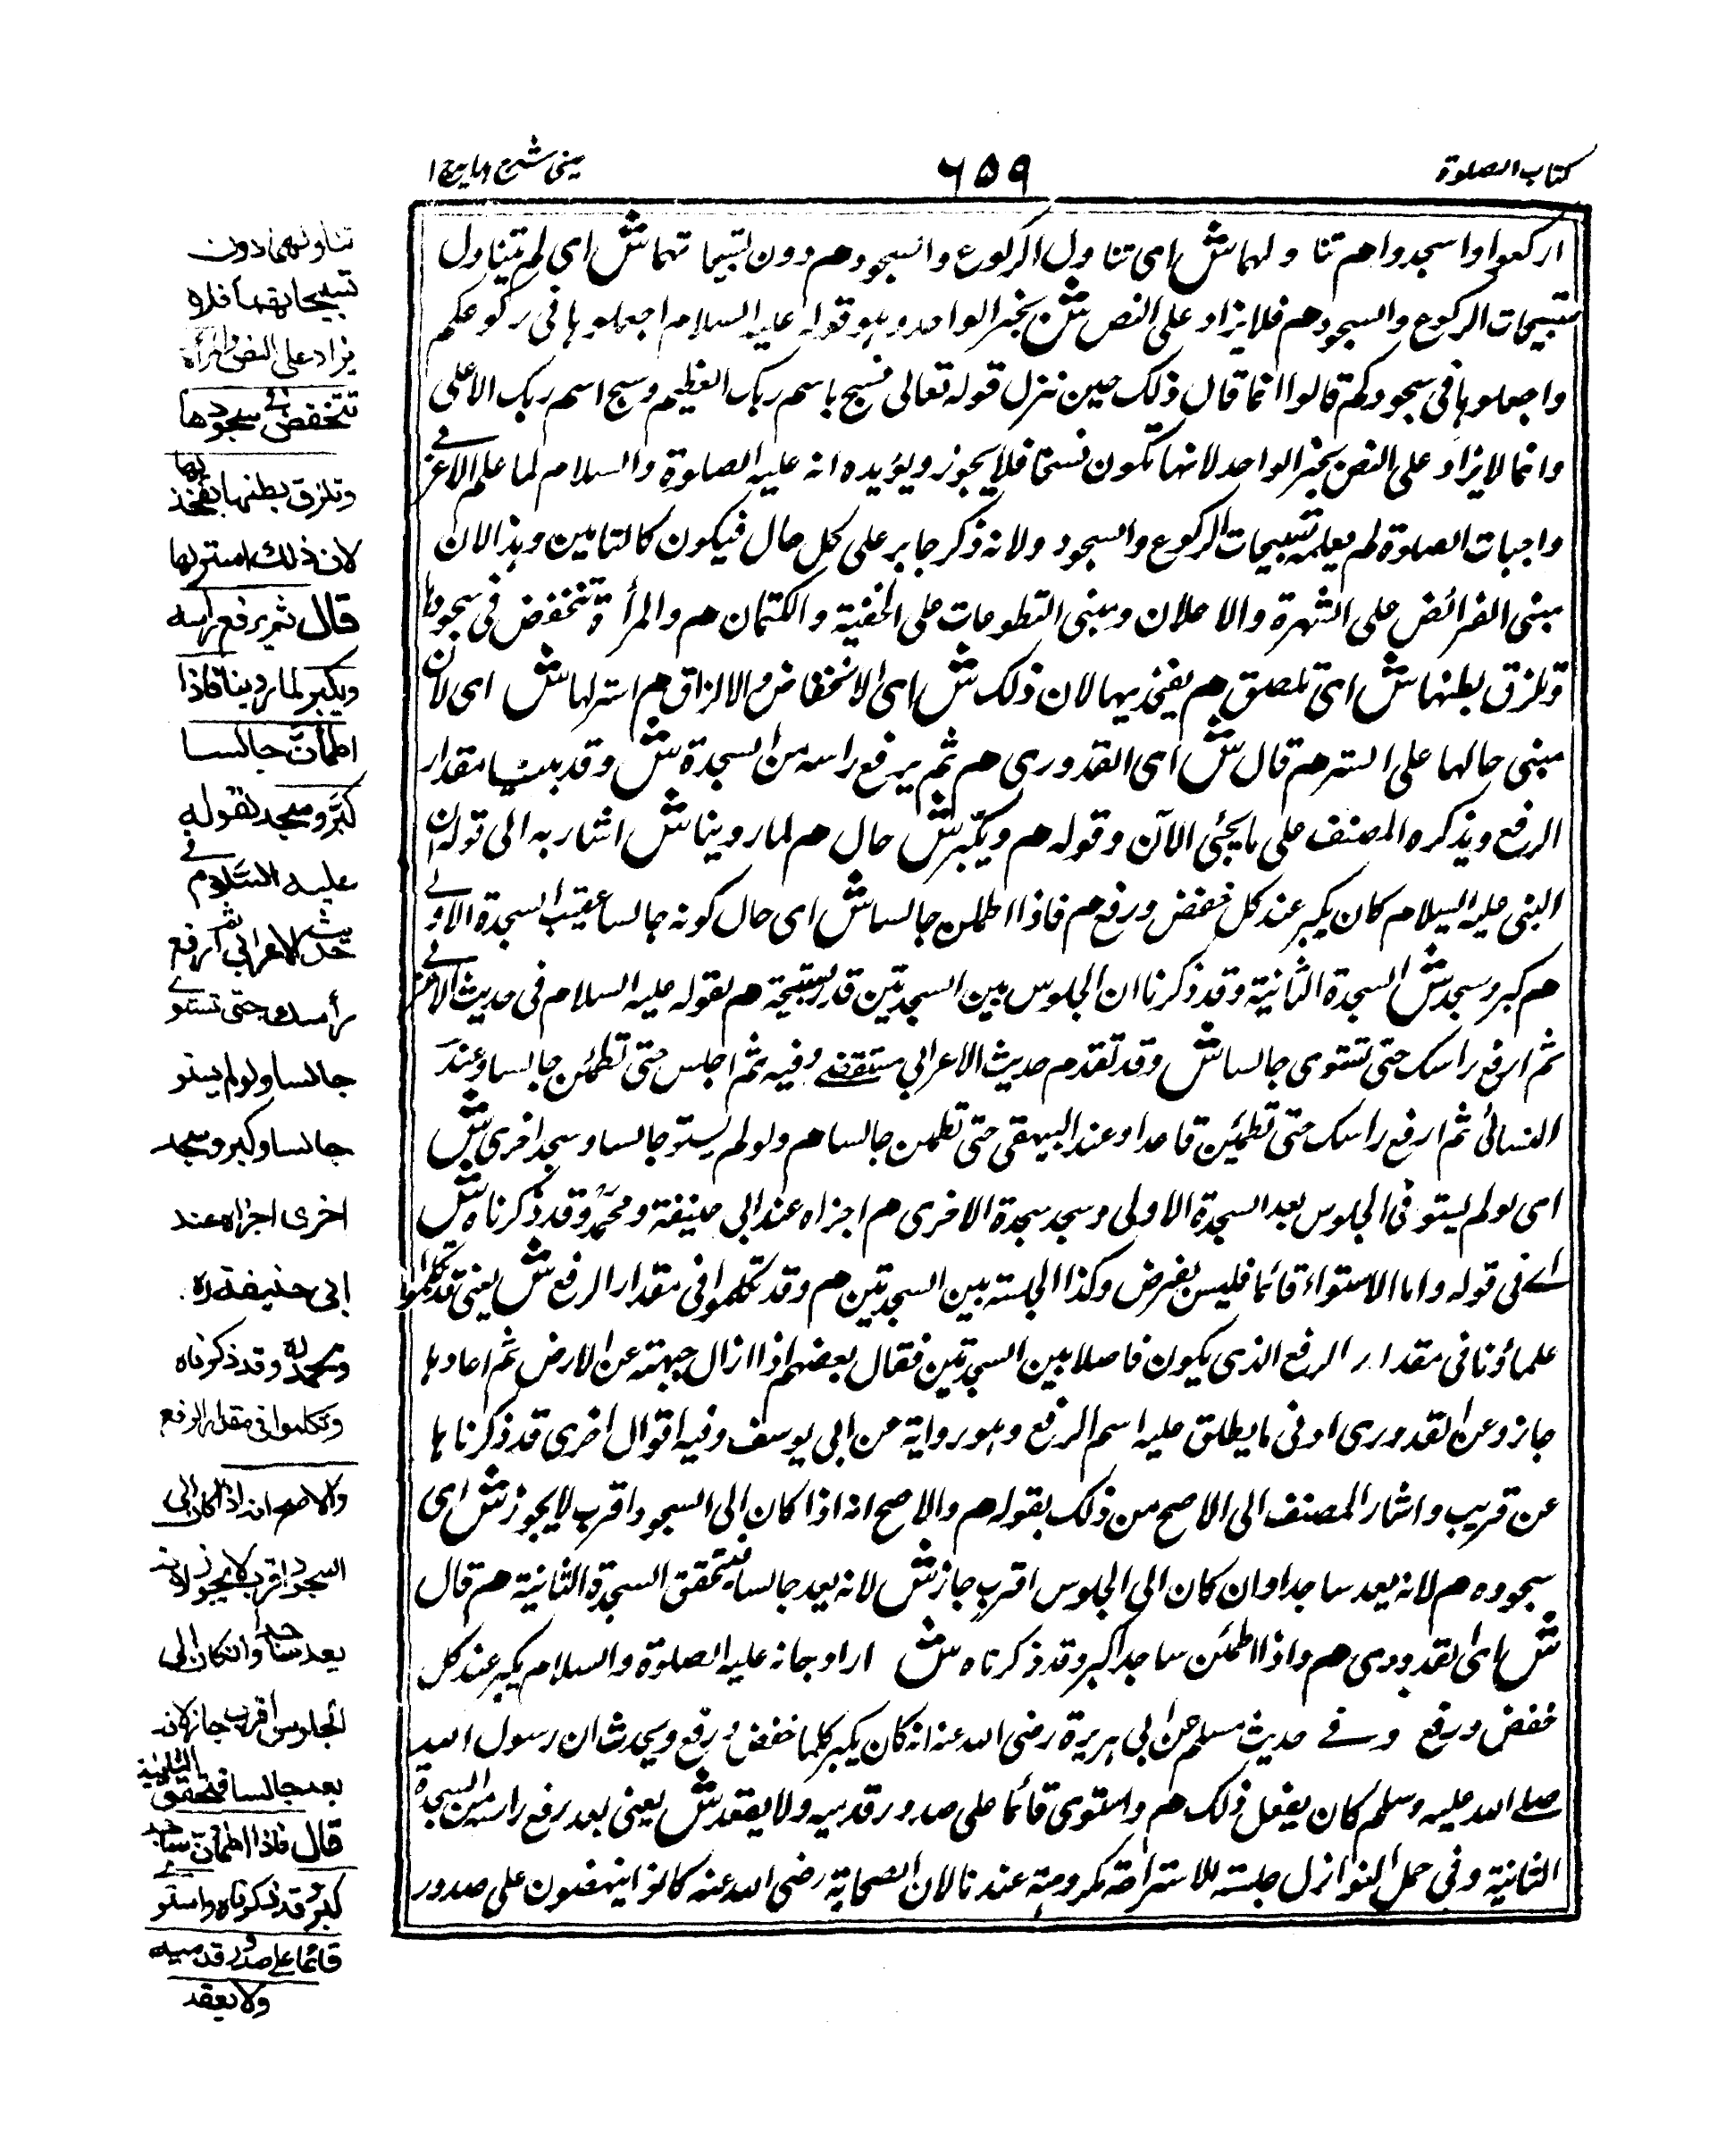 كتاب الصلوة
٦٥٩
عينى شرح هدايه ج ١
اركعوا واسجدوا هم تنا ولهما ش اى تناول الركوع والسجود هم دون تسبيحا تهما ش اى لم يتناول
تسبيحات الركوع والسجود هم فلا يزاد على النص ش بخبر الواحد وهو قوله عليه السلام اجعلوها فى ركوعكم
واجعلوها فى سجودكم قالوا انما قال ذلك حين نزل قوله تعالى فسبح باسم ربك العظيم وسبح اسم ربك الاعلى
وانما لا يزاد على النص بخبر الواحد لانها تكون نسخا فلا يجوز ويؤيده انه عليه الصلوة والسلام لما علم الاعرابى
واجبات الصلوة لم يعلمه تسبيحات الركوع والسجود ولانه ذكر جابر على كل حال فيكون كالتامين وهذا لان
مبنى الفرائض على الشهرة والاعلان ومبنى التطوعات على الخفية والكتمان هم والمرأة تنخفض فى سجودها
وتلزق بطنها ش اى تلصق هم بفخذيها لان ذلك ش اى الانخفاض والالزاق هم استر لها ش اى لان
مبنى حالها على الستر هم قال ش اى القدورى هم ثم يرفع راسه من السجدة ش وقد بينا مقدار
الرفع ويذكره المصنف على ما يجئى الآن وقوله هم ويكبر ش حال هم لما روينا ش اشار به الى قوله ان
النبى عليه السلام كان يكبر عند كل خفض ورفع هم فاذا اطمان جالسا ش اى حال كونه جالسا عقيب السجدة الاولى
هم كبر وسجد ش السجدة الثانية وقد ذكرنا ان الجلوس بين السجدتين قدر تسبيحة هم لقوله عليه السلام فى حديث الاعرابى
ثم ارفع راسك حتى تستوى جالسا ش وقد تقدم حديث الاعرابى مستقصى وفيه ثم اجلس حتى تطمئن جالسا وعند
النسائى ثم ارفع راسك حتى تطمئن قاعدا وعند البيهقى حتى تطمن جالسا هم ولو لم يستو جالسا وسجد اخرى ش
اى لو لم يستو فى الجلوس بعد السجدة الاولى وسجد سجدة الاخرى هم اجزاه عند ابى حنيفة ومحمد وقد ذكرناه ش
اى فى قوله واما الاستواء قائما فليس بفرض وكذا الجلسة بين السجدتين هم وقد تكلموا فى مقدار الرفع ش يعنى قد تكلموا
علماؤنا فى مقدار الرفع الذى يكون فاصلا بين السجدتين فقال بعضهم اذا ازال جبهته عن الارض ثم اعادها
جاز وعن القدورى ادنى ما يطلق عليه اسم الرفع وهو رواية عن ابى يوسف وفيه اقوال اخرى قد ذكرناها
عن قريب واشار المصنف الى الاصح من ذلك بقوله هم والاصح انه اذا كان الى السجود اقرب لا يجوز ش اى
سجوده هم لانه يعد ساجدا وان كان الى الجلوس اقرب جاز ش لانه يعد جالسا فيتحقق السجدة الثانية هم قال
ش اى القدورى هم واذا اطمئن ساجدا كبر وقد ذكرناه ش اراد به انه عليه الصلوة والسلام يكبر عند كل
خفض ورفع وفى حديث مسلم عن ابى هريرة رضى الله عنه انه كان يكبر كلما خفض ورفع ويحدث ان رسول الله
صلى الله عليه وسلم كان يفعل ذلك هم واستوى قائما على صدور قدميه ولا يقعد ش يعنى بعد رفع راسه من السجدة
الثانية وفى حمل النوازل جلسة للاستراحة مكروهة عندنا لان الصحابة رضى الله عنه كانوا ينهضون على صدور
تناولهما دون
تسبيحاتهما فلا
يزاد على النص والمرأة
تنخفض فى سجودها
وتلزق بطنها بفخذيها
لان ذلك استر لها
قال ثم يرفع راسه
ويكبر لما روينا فاذا
اطمأن جالسا
كبر وسجد لقوله
عليه السلام فى
حديث الاعرابى ثم ارفع
رأسك حتى تستوى
جالسا ولو لم يستو
جالسا وكبر وسجد
اخرى اجزاه عند
ابى حنيفة ره
ومحمد ره وقد ذكرناه
وتكلموا فى مقدار الرفع
والاصح انه اذا كان الى
السجود اقرب لا يجوز لانه
يعد ساجدا وان كان الى
الجلوس اقرب جاز لانه
يعد جالسا فيتحقق الثانية
قال فاذا اطمأن ساجدا
كبر وقد ذكرناه واستوى
قائما على صدور قدميه
ولا يقعد